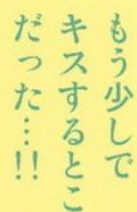 もう少しで
キスするとこ
だった…!!